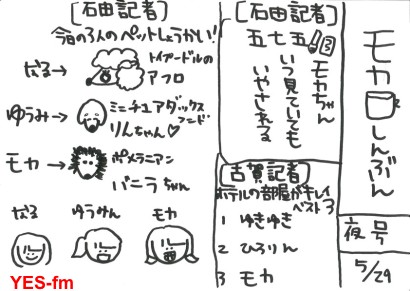 モカしんぶん
夜号
5/29
[石田記者]
五七五
モカちゃん
いつ見ていても
いやされる
[古賀記者]
ホテルの部屋がキレイ
ベスト3
1 ゆきゆき
2 ひろりん
3 モカ
[石田記者]
今日の3人のペットしょうかい!
なる→
トイプードルの
アフロ
ゆうみ→
ミニチュアダックス
フンド
りんちゃん♡
モカ→
ポメラニアン
バニラちゃん
なる
ゆうみん
モカ
YES-fm